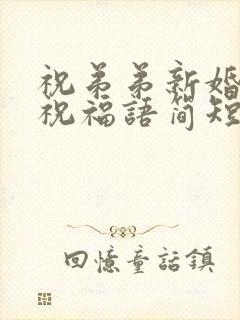 祝弟弟新婚
祝福語简短
回憶童話鎮